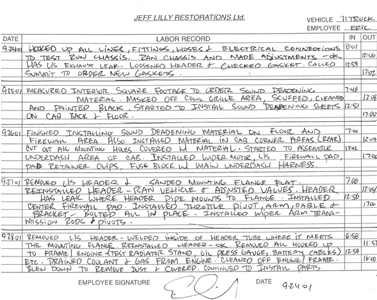 JEFF LILLY RESTORATIONS Ltd.
VEHICLE 71 TRUCK
EMPLOYEE ERIC
DATE LABOR RECORD IN OUT
HOOKED UP ALL LINES, FITTINGS, HOSES & ELECTRICAL CONNECTIONS 8:01
TO TEST RUN CHASSIS. RAN CHASSIS AND MADE ADJUSTMENTS - OK 12:00
HAS L/S EXHAUST LEAK. LOOSENED HEADER & CHECKED GASKET. CALLED 12:59
SUMMIT TO ORDER NEW GASKETS. 17:02
MEASURED INTERIOR SQUARE FOOTAGE TO ORDER SOUND DEADENING 7:48
MATERIAL. MASKED OFF COWL GRILLE AREA, SCUFFED, CLEANED
AND PAINTED BLACK. STARTED TO INSTALL SOUND DEADENING SHEETS 12:51
ON CAB BACK & FLOOR. 17:00
FINISHED INSTALLING SOUND DEADENING MATERIAL ON FLOOR AND 7:00
FIREWALL AREA. ALSO INSTALLED MATERIAL IN CAB CORNER AREAS (REAR)
CUT OUT ALL MOUNTING HOLES COVERED W/ MATERIAL - STARTED TO ASSEMBLE
UNDERDASH AREA OF CAR. INSTALLED WIPER MOTOR, L/S FIREWALL PAD,
PAD RETAINER CLIPS, FUSE BLOCK W/ MAIN UNDERDASH HARNESS.
REMOVED L/S HEADER & SANDED MOUNTING FLANGE FLAT 7:00
REINSTALLED HEADER - RAN VEHICLE & ADJUSTED VALVES. HEADER
HAS LEAK WHERE HEADER PIPE MOUNTS TO FLANGE. INSTALLED 12:50
CENTER FIREWALL PAD. INSTALLED THROTTLE PIVOT, ARM, CABLE &
BRACKET - BOLTED ALL IN PLACE. INSTALLED WIPER ARM TRANS-
MISSION RODS & PIVOTS.
REMOVED L/S HEADER - WELDED INSIDE OF HEADER TUBE WHERE IT MEETS 6:58
THE MOUNTING FLANGE. REINSTALLED HEADER - OK. REMOVED ALL HOOKED UP 11:57
TO FRAME/ENGINE (TEST RADIATOR STAND, OIL PRESS GAUGE, BATTERY CABLES) 12:58
ETC. DRAINED COOLANT & GAS FROM ENGINE. CLEANED OFF ENGINE/FRAME.
BLEW DOWN TO REMOVE DUST & COVERED. CONTINUED TO INSTALL PARTS
EMPLOYEE SIGNATURE DATE 92401